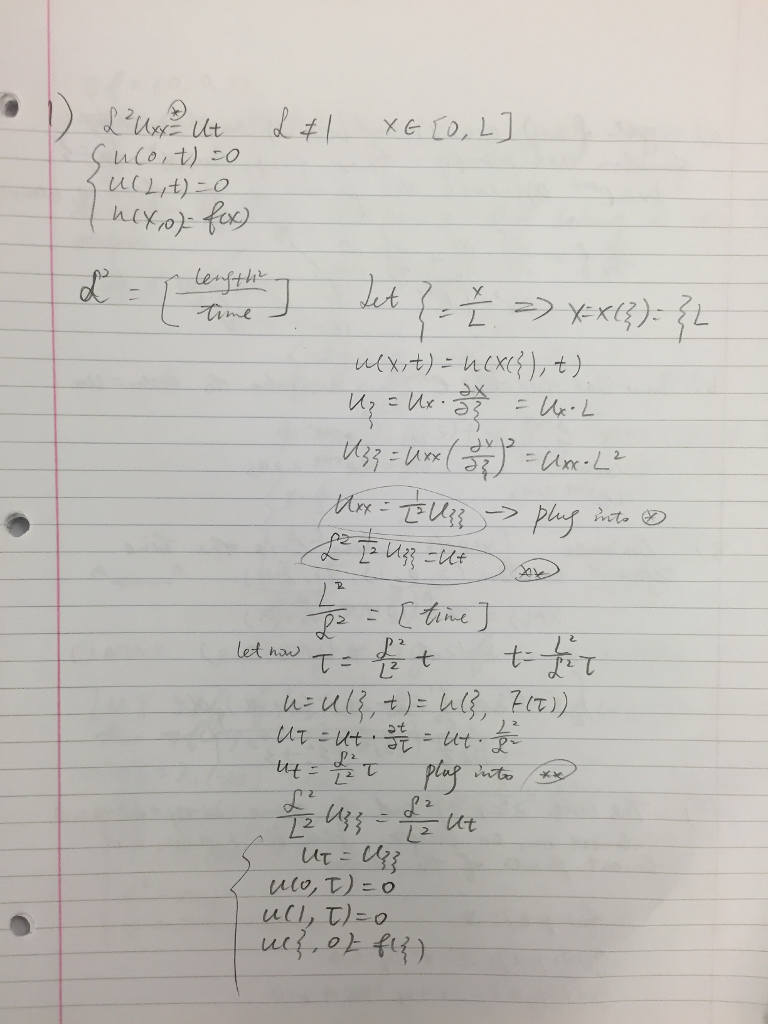 1) α²Uxx =⊛ Ut α ≠ 1 x ∈ [0, L]
{ u(0, t) = 0
u(L, t) = 0
u(x, 0) = f(x)
α² = [length²/time] Let ξ = x/L => x = x(ξ) = ξL
u(x, t) = u(x(ξ), t)
Uξ = Ux · ∂x/∂ξ = Ux · L
Uξξ = Uxx (∂x/∂ξ)² = Uxx · L²
Uxx = 1/L² Uξξ -> plug into ⊛
α² 1/L² Uξξ = Ut (**)
L²/α² = [time]
let now τ = α²/L² t t = L²/α² τ
u = u(ξ, t) = u(ξ, T(τ))
Uτ = Ut · ∂t/∂τ = Ut · L²/α²
Ut = α²/L² τ plug into (**)
α²/L² Uξξ = α²/L² Ut
{ Uτ = Uξξ
u(0, τ) = 0
u(1, τ) = 0
u(ξ, 0) = f(ξ)